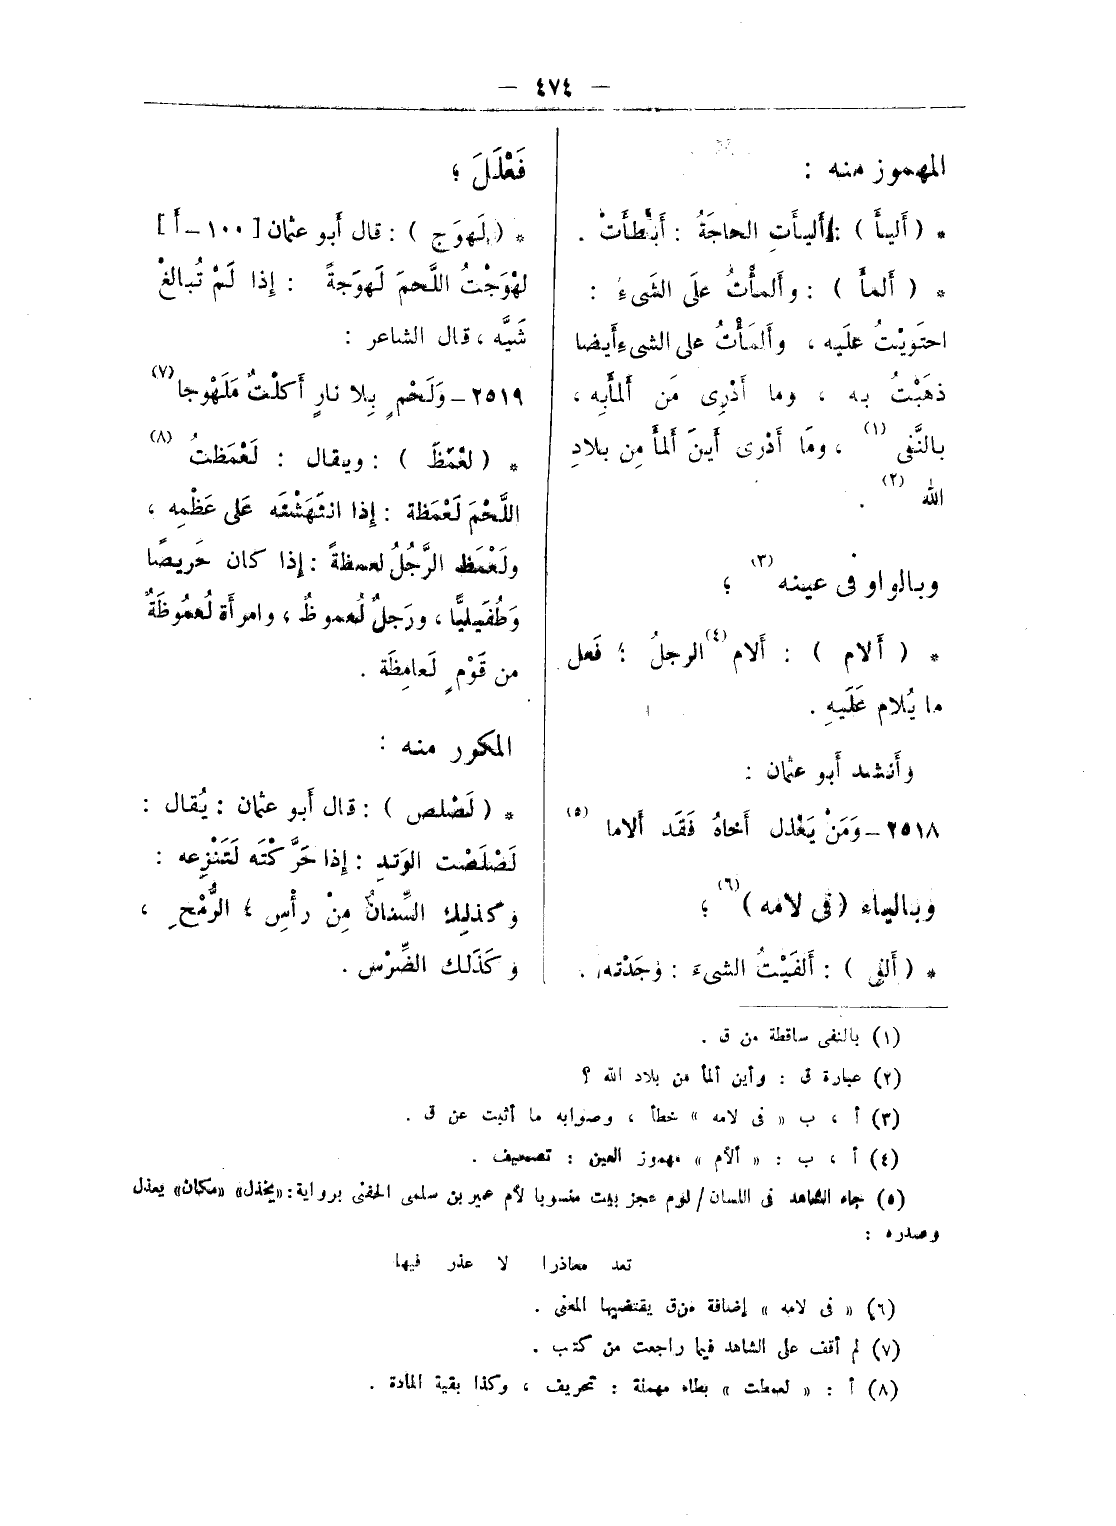 — ٤٧٤ —
المهموز منه :
* ( أليأ ) : أليأَتِ الحاجَةُ : أَبْطَأَتْ .
* ( ألمأ ) : وألمأْتُ علَى الشَىءُ :
احتَويْتُ علَيه ، وأَلمَأْتُ على الشىءِ أَيضا
ذهَبْتُ به ، وما أَدْرِى مَن ألمأَبِه ،
بالنَّفى (١) ، ومَا أَدْرى أَينَ ألمأَ مِن بلادِ
الله (٢) .
وبالواو فى عينه (٣) ؛
* ( ألام ) : أَلام (٤) الرجلُ ؛ فَعل
ما يُلام عَلَيهِ .
وأَنشد أَبو عثمان :
٢٥١٨ – وَمَنْ يَعْذل أَخاهُ فَقَد ألاما (٥)
وبالياء (فى لامه) (٦) ؛
* ( ألفى ) : أَلفَيْتُ الشىءَ : وَجَدْته .
فَعْلَلَ ؛
* ( لَهوَج ) : قال أَبو عثمان [ ١٠٠ – أَ ]
لهْوَجْتُ اللَّحمَ لَهوَجةً : إذا لَمْ تُبالغْ
شَيَّه ، قال الشاعر :
٢٥١٩ – وَلَحْمٍ بِلا نارٍ أَكلْتُ مَلَهْوجا (٧)
* ( لعْمَظَ ) : ويقال : لَعْمَظتُ (٨)
اللَّحْمَ لَعْمَظة : إذا انتَهَشْتَه عَلى عَظْمِه ،
ولَعْمَظ الرَّجُلُ لعمظةً : إذا كان حَريصًا
وَطُفَيليًّا ، ورَجلٌ لُعموظُ ، وامرأَة لُعمُوظَةٌ
من قَوْمٍ لَعامِظَة .
المكرر منه :
* ( لَصْلص ) : قال أَبو عثمان : يُقال :
لَصْلَصْت الوَتدِ : إذا حَرَّكتَه لَتَنْزِعه :
وكذلك السِّنانُ مِنْ رأْسِ الرُّمْحِ ،
وكَذَلك الضِّرْس .
(١) بالنفى ساقطة من ق .
(٢) عبارة ق : وأين ألمأ من بلاد الله ؟
(٣) أ ، ب « فى لامه » خطأ ، وصوابه ما أثبت عن ق .
(٤) أ ، ب : « ألأم » مهموز العين : تصحيف .
(٥) جاء الشاهد فى اللسان / لوم عجز بيت منسوبا لأم عمير بن سلمى الحنفى برواية : «يخذل» «مكان» يعذل
وصدره :
تعد معاذرا لا عذر فيها
(٦) « فى لامه » إضافة من ق يقتضيها المعنى .
(٧) لم أقف على الشاهد فيما راجعت من كتب .
(٨) أ : « لعمطت » بطاء مهملة : تحريف ، وكذا بقية المادة .